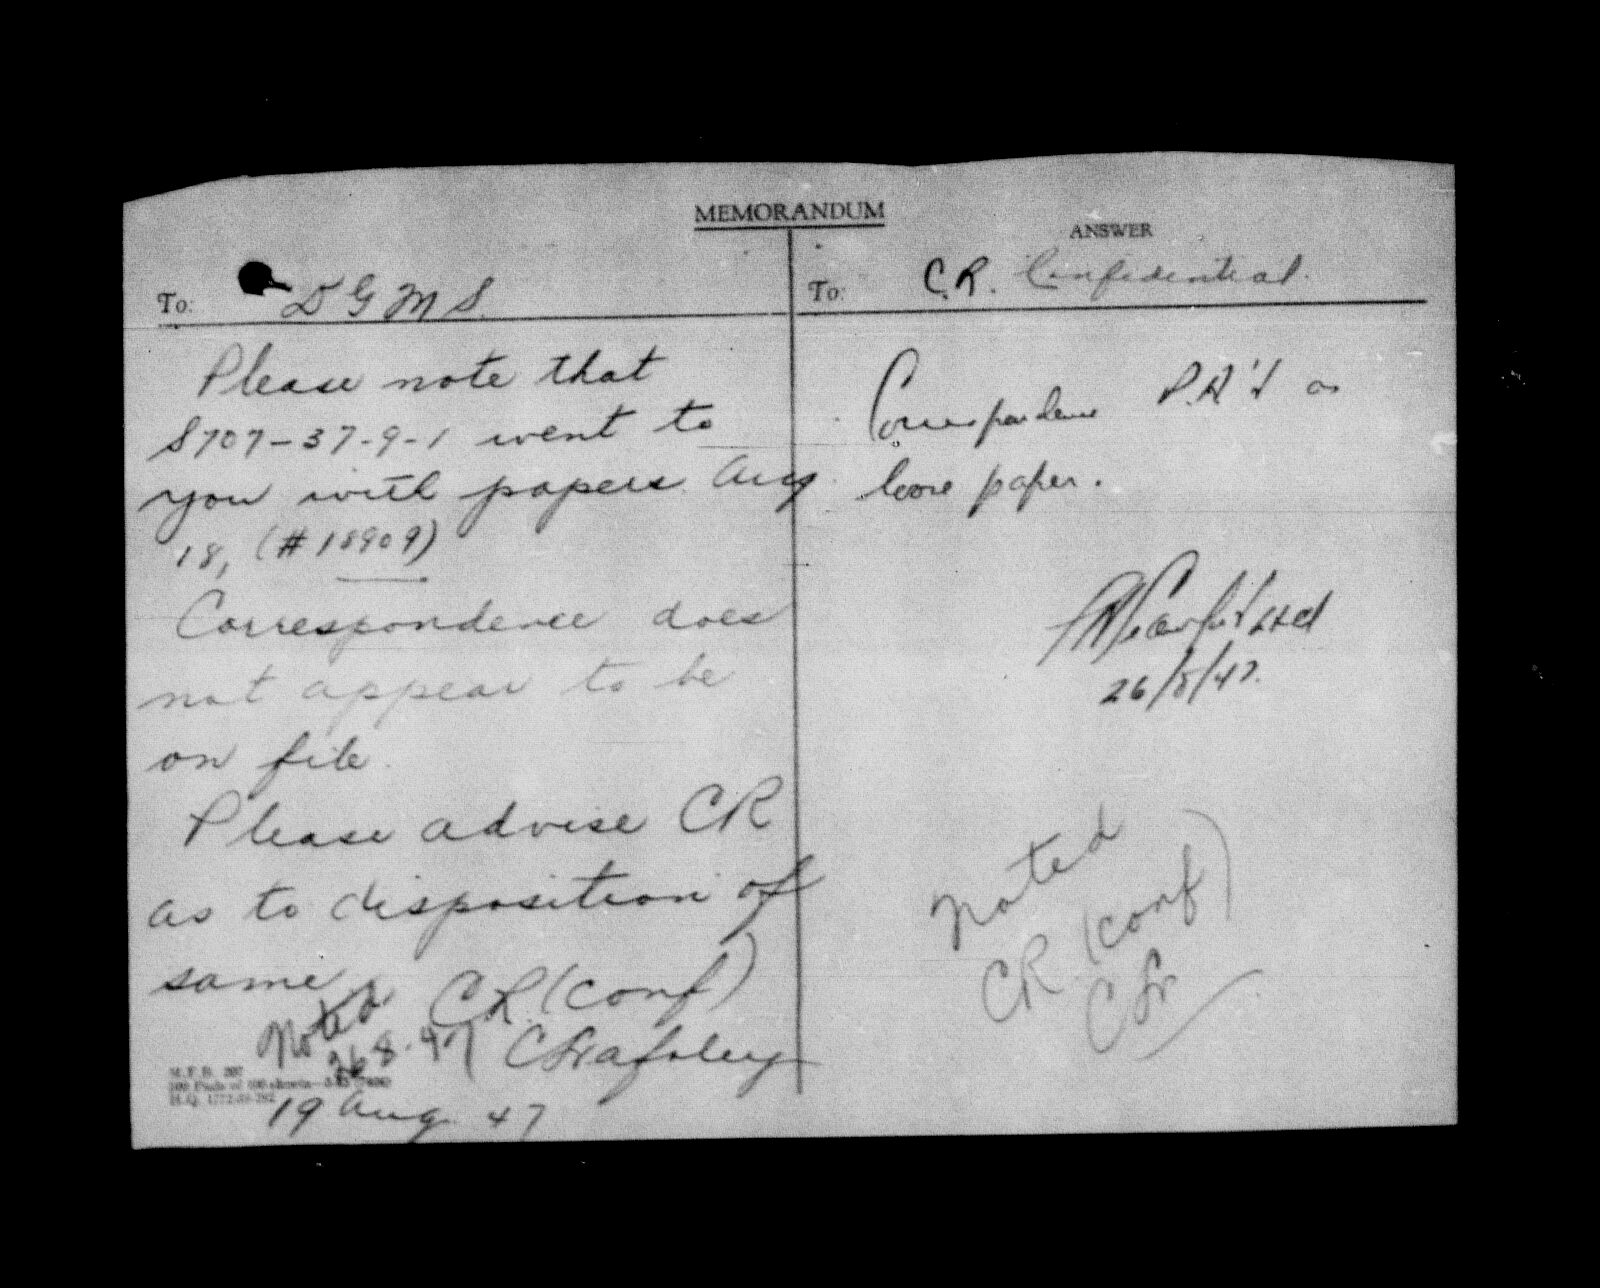 MEMORANDUM
To: D G M S.
Please note that
S707-37-9-1 went to
you with papers Aug
18, (#18909)
Correspondence does
not appear to be
on file.
Please advise CR
as to disposition of
same.
CR. (Conf)
Noted
26.8.47
19 Aug. 47
ANSWER
To: C.R. Confidential.
Correspondence P.A'd as
loose paper.
26/8/47.
Noted
CR (Conf)